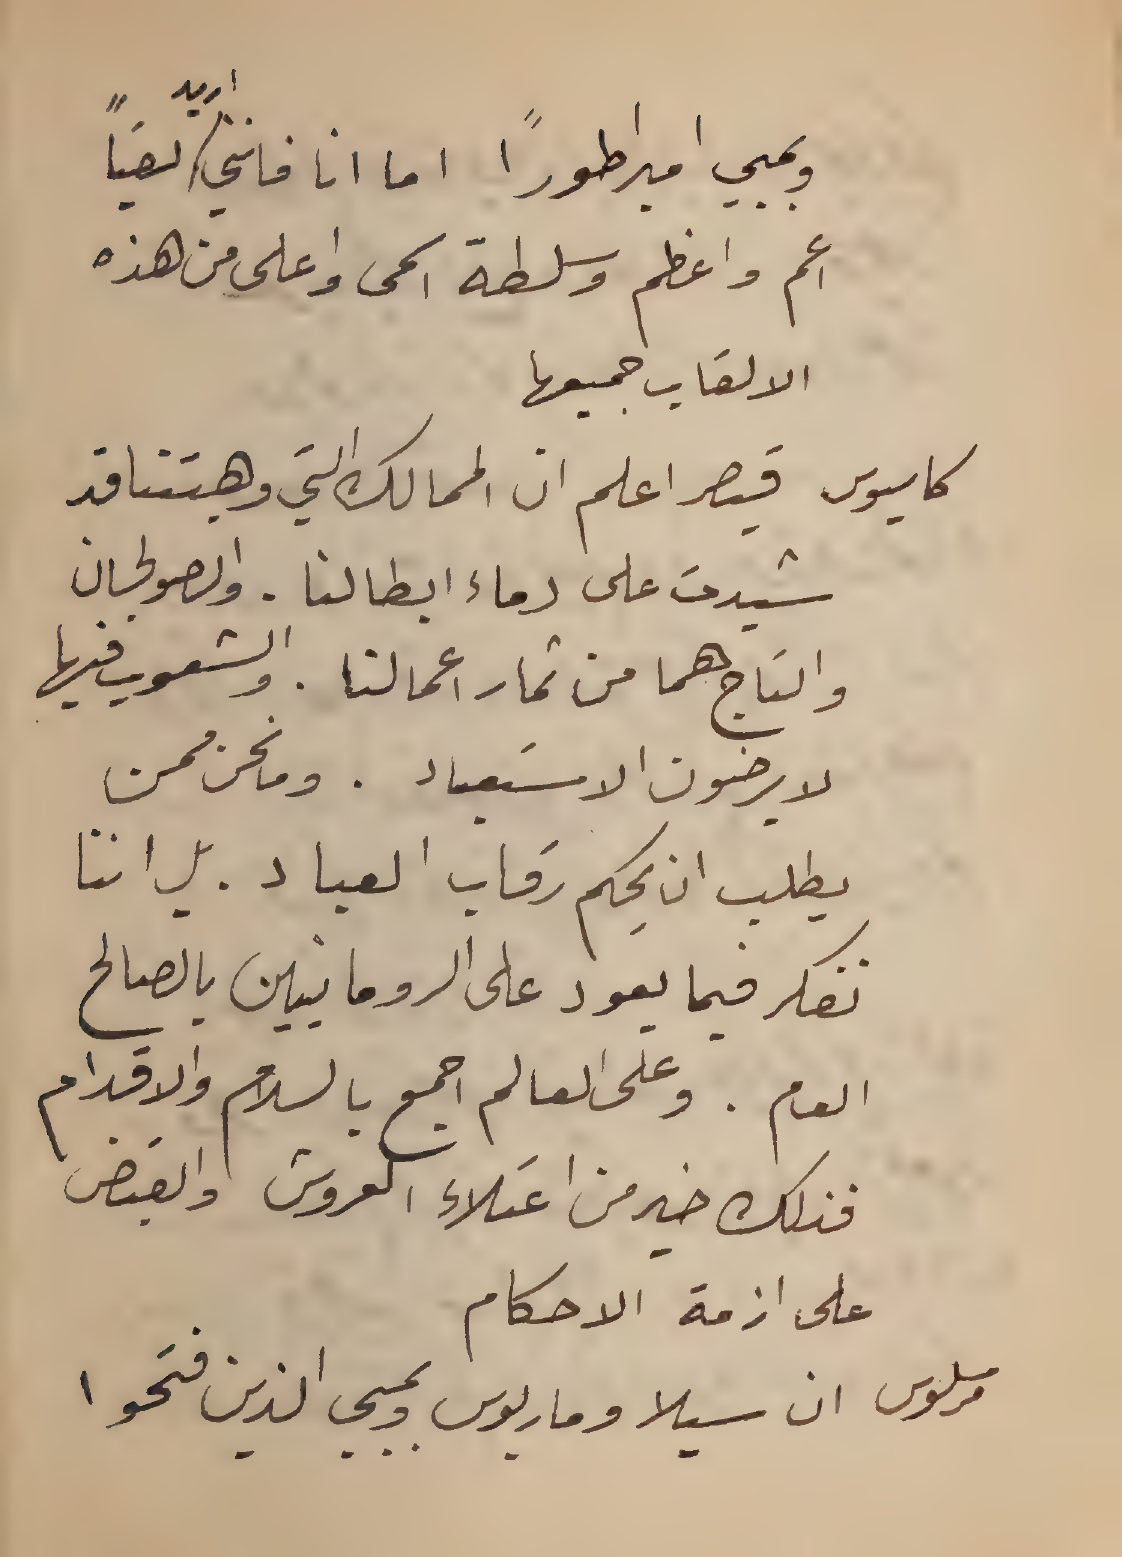 وبمبي امبراطورًا اما انا فانني اريد لقبًا
اعم واعظم وسلطة اسمى واعلى من هذه
الالقاب جميعها
كاسيوس قيصر اعلم ان الممالك التي وهبتنا قد
شيدت على دماء ابطالنا . والصولجان
والتاج هما من ثمار اعمالنا . والشعوب فيها
لا يرضون الاستعباد . وما نحن ممن
يطلب ان يحكم رقاب العباد . بل اننا
نفكر فيما يعود على الرومانيين بالصالح
العام . وعلى العالم اجمع بالسلام والاقدام
فذلك خير من اعتلاء العروش والقبض
على ازمة الاحكام
مرسلوس ان سيلا وماريوس وبمبي الذين فتحوا